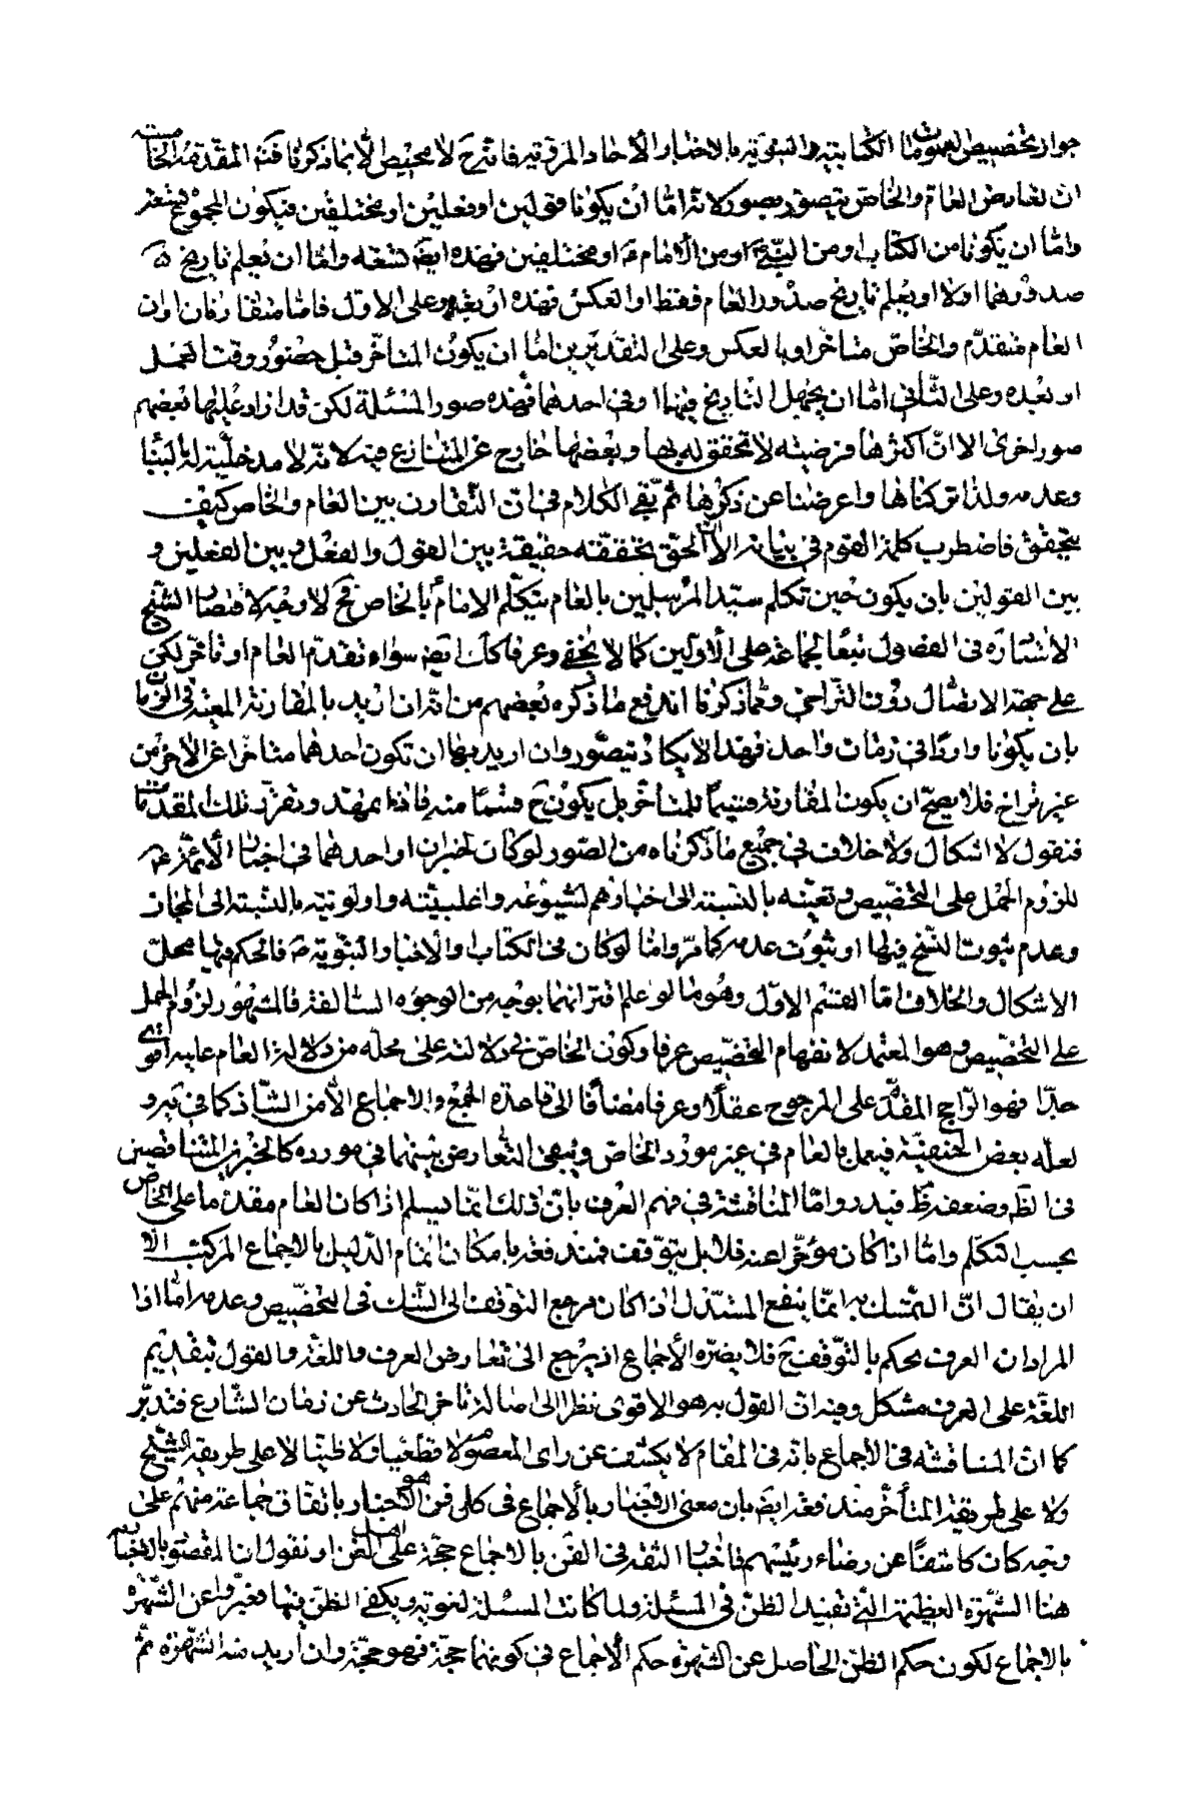 جواز تخصيص العمومات الكتابية والنبوية بالاخبار الآحاد المروية فانه ح لا محيص الا بما ذكرنا فتم المقدمة الخامسة
ان تعارض العام والخاص يتصور بصور لانه اما ان يكونا قولين او فعلين او مختلفين فيكون المجموع تسعة
واما ان يكونا من الكتاب او من النبي ص او من الامام ع او مختلفين فهذه ايض تسعة واما ان يعلم تاريخ
صدورهما او لا او يعلم تاريخ صدور العام فقط او العكس فهذه اربعة وعلى الاول فاما متقارنان او ان
العام متقدم والخاص متاخر او بالعكس وعلى التقديرين اما ان يكون المتاخر قبل حضور وقت العمل
او بعده وعلى الثاني اما ان يجهل التاريخ فيهما او في احدهما فهذه صور المسئلة لكن قد زاد عليها بعضهم
صور اخرى الا ان اكثرها فرضية لا تحقق لها وبعضها خارج عن المتنازع فيه لانه لا مدخلية له
وعدمه ولذا تركناها واعرضنا عن ذكرها ثم بقى الكلام في ان التقارن بين العام والخاص كيف
يتحقق فاضطرب كلمة القوم في بيانه الا ان الحق تحققه حقيقة بين القول والفعل وبين الفعلين و
بين القولين بان يكون حين تكلم سيد المرسلين بالعام يتكلم الامام بالخاص فح لا وجه لاقتصار الشيخ
الاستاد في الفصول تبعا لجماعة على الاولين كما لا يخفى وعرفا كك ايض سواء تقدم العام او تاخر لكن
على جهة الاتصال دون التراخي وبما ذكرنا اندفع ما ذكره بعضهم من انه ان اريد بالمقارنة المعية في الزمان
بان يكونا واردا في زمان واحد فهذا لا يكاد يتصور وان اريد بها ان تكون احدهما متاخرا عن الاخر من
غير تراخ فلا يصح ان يكون المقارنة قسيما للمتاخر بل يكون ح قسما منه فاذا تمهد وتقرر تلك المقدمات
فنقول لا اشكال ولا خلاف في جميع ما ذكرناه من الصور لو كان الخبران او احدهما في اخبار الائمة ع
للزوم الحمل على التخصيص وتعينه بالنسبة الى اخبارهم لشيوعه واغلبيته واولويته بالنسبة الى المجاز
وعدم ثبوت النسخ فيها او ثبوت عدمه كما مر واما لو كان في الكتاب والاخبار النبوية ص فالحكم فيها محل
الاشكال والخلاف اما القسم الاول وهو ما لو علم اقترانهما بوجه من الوجوه السالفة فالمشهور لزوم الحمل
على التخصيص وهو المعتمد لانفهام التخصيص عرفا وكون الخاص في دلالته على محله من دلالة العام عليه اقوى
جدا فهو الراجح المقدم على المرجوح عقلا وعرفا مضافا الى قاعدة الجمع والاجماع الا من الشاذ كما في يرو
لعله بعض الحنفية فيعمل بالعام في غير مورد الخاص ويبقى التعارض بينهما في مورده كالخبرين المتناقضين
في الظ وضعفه ظ فتدبر واما المناقشة في فهم العرف بان ذلك انما يسلم اذا كان العام مقدما على الخاص
بحسب التكلم واما اذا كان مؤخرا عنه فلا بل يتوقف فمندفعة بامكان اتمام الدليل بالاجماع المركب الا
ان يقال ان التمسك به انما ينفع المستدل اذا كان مرجع التوقف الى الشك في التخصيص وعدمه اما اذا
المراد ان العرف يحكم بالتوقف فح فلا يضره الاجماع اذ يرجع الى تعارض العرف واللغة والقول بتقديم
اللغة على العرف مشكل وفيه ان القول به هو الاقوى نظرا الى اصالة تاخر الحادث عن زمان الشارع فتدبر
كما ان المناقشة في الاجماع بانه في المقام لا يكشف عن راى المعصوم لا قطعيا ولا ظنيا لا على طريقة الشيخ
ولا على طريقة المتأخر مندفعة ايض بان معنى الاخبار بالاجماع في كل فن هو الاخبار باتفاق جماعة منهم على
وجه كان كاشفا عن رضاء رئيسهم فاخبار الثقة في الفن بالاجماع حجة على اهل الفن او نقول ان المقصود بالاجماع
هنا الشهرة العظيمة التي تفيد الظن في المسئلة ولما كانت المسئلة لغوية ويكفى الظن فيها فعبروا عن الشهرة
بالاجماع لكون حكم الظن الحاصل عن الشهرة حكم الاجماع في كونهما حجة فهو حجة وان اريد منه الشهرة ثم